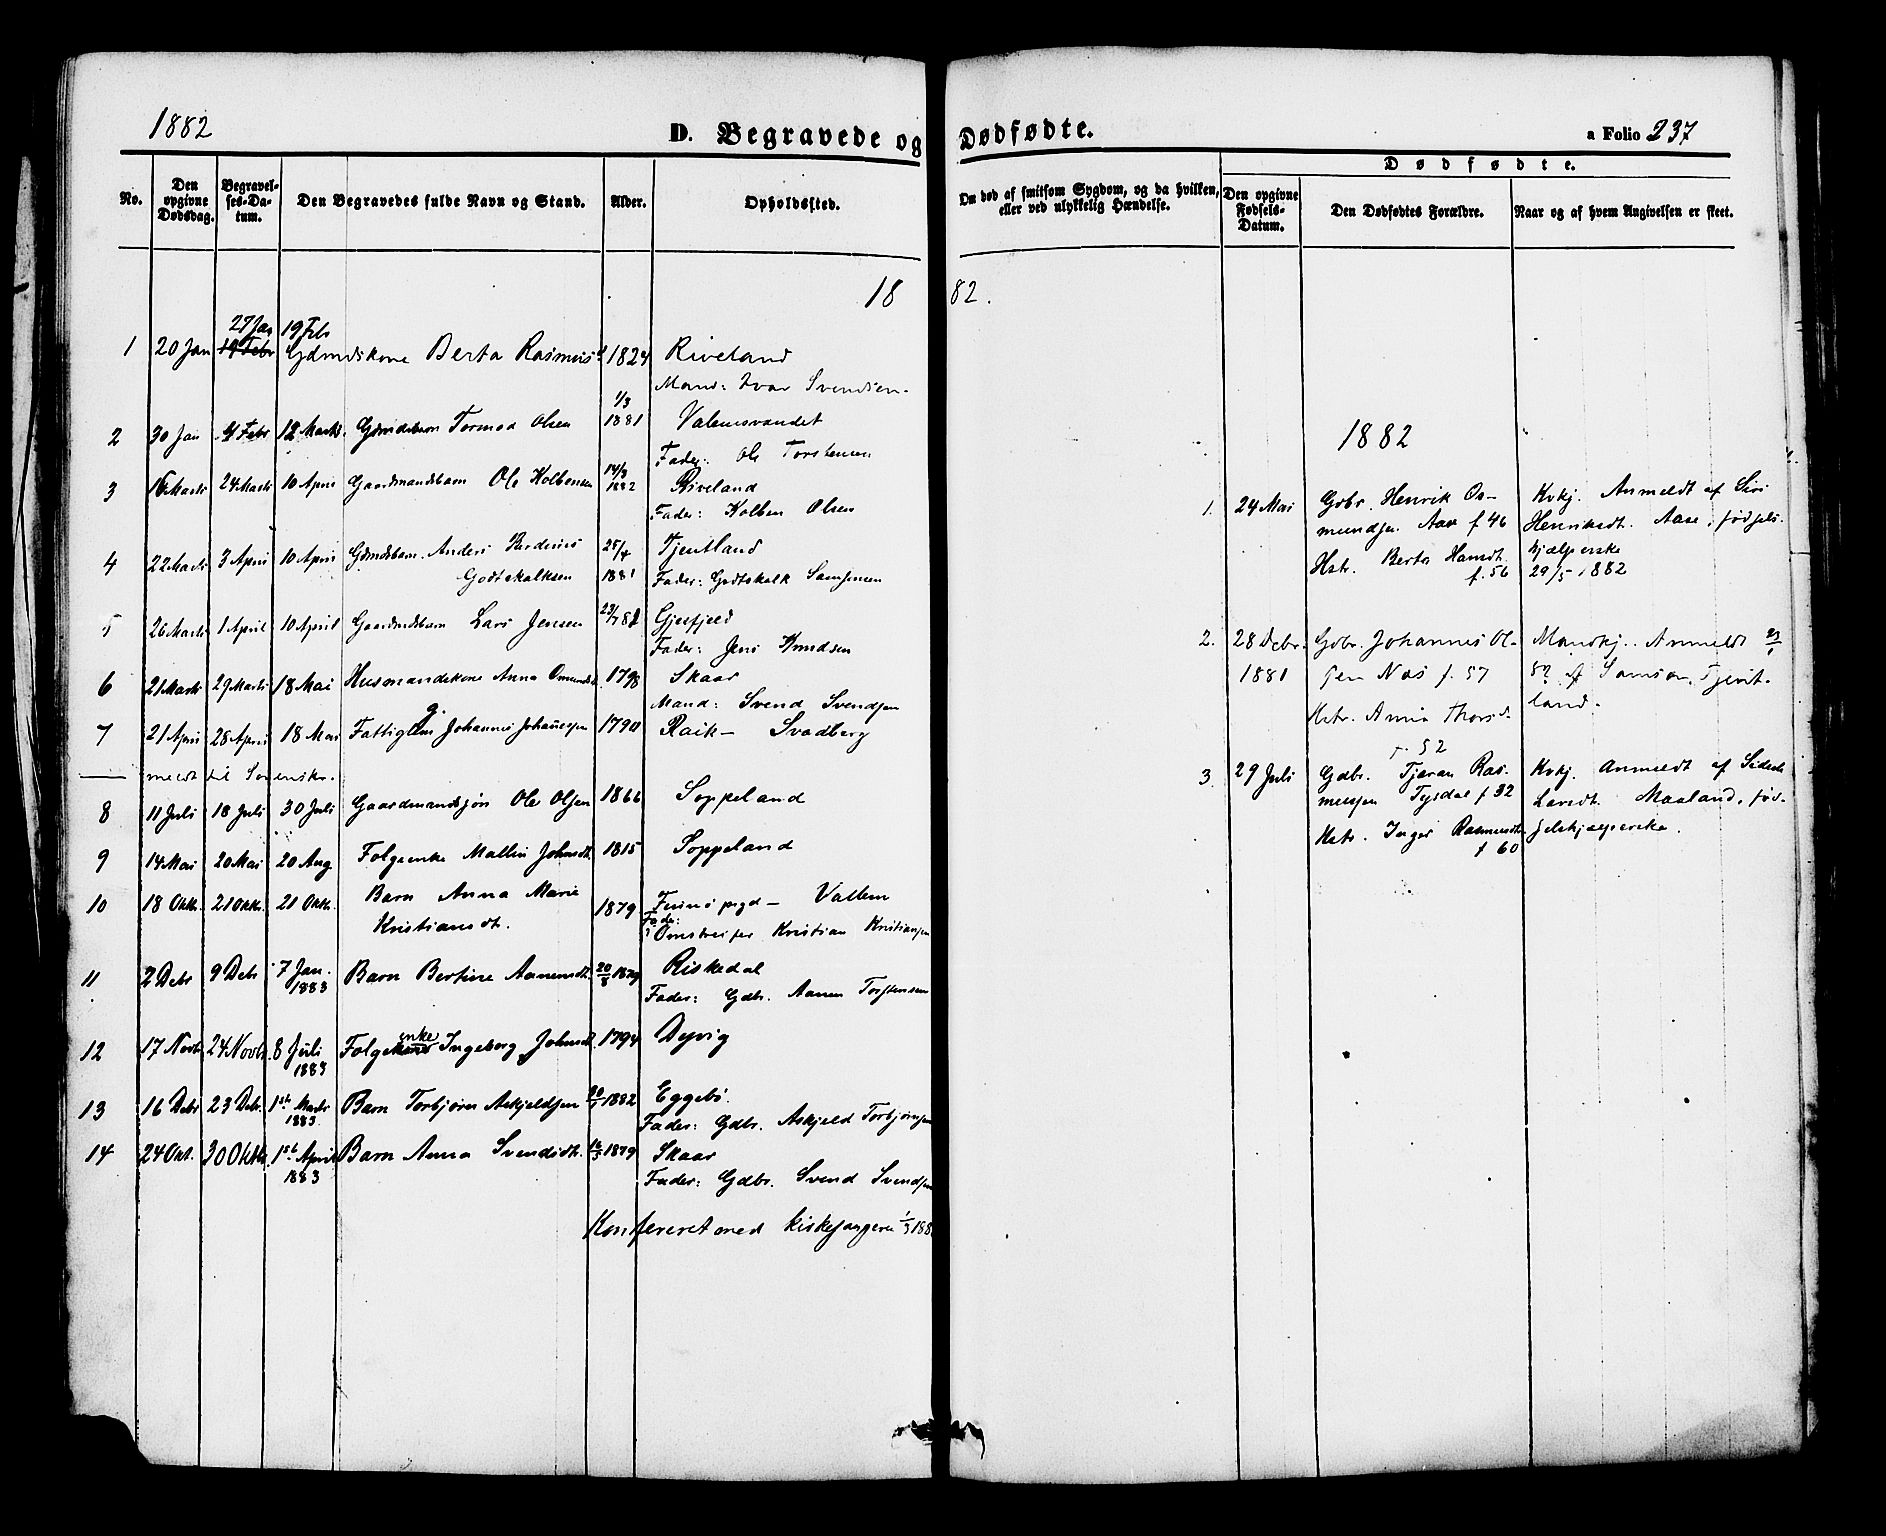 1882
D. Begravede og Dødfødte.
a Folio 237
No.
Den opgivne Dødsdag.
Begravelses-Datum.
Den Begravedes fulde Navn og Stand.
Alder.
Opholdssted.
Om død af smitsom Sygdom, og da hvilken, eller ved ulykkelig Hændelse.
Dødfødte.
Den opgivne Fødsels-Datum.
Den Dødfødtes Forældre.
Naar og af hvem Angivelsen er skeet.
1882.
27 Jan 19 Feb
1 20 Jan 19 Febr Gdmdskone Berta Rasmusd 1824 Riveland
Mand: Ivar Svendsen
1/3
2 30 Jan 4 Febr 12 Marts Gdmdsbarn Tormod Olsen 1881 Valemsvandet
Fader: Ole Torstensen
14/3
3 16 Marts 24 Marts 10 April Gaardmandsbarn Ole Kolbensen 1882 Riveland
Fader: Kolben Olsen
4 22 Marts 3 April 10 April Gdmdsbarn Anders 25/4 Tjentland
Godtskalksen 1881 Fader: Godtskalk Samsonsen
5 26 Marts 1 April 10 April Gaardmdsbarn Lars Jensen Gjesfjeld
Fader: Jens Knudsen
6 21 Marts 29 Marts 18 Mai Husmandskone Anna 1798 Skaar
Mand: Svend Svendsen
7 21 April 28 April 18 Mai Johannes Johannessen 1790 Raik – Svadberg
meldt til
8 11 Juli 18 Juli 30 Juli Gaardmandssøn Ole Olsen 1866 Soppeland
9 14 Mai 20 Mai 20 Aug. Folgeenke Mallin Johnsdt. 1815 Soppeland
10 18 Oktr. 21 Oktr. 21 Oktr. Barn Anna Marie 1879 Finnø pgd – Vallem
Kristiansdt. Fader: Omstreifer Kristian Kristiansen
11 2 Debr 9 Debr 7 Jan. Barn Bertine Aanensdt. 20/8 1879 Riskedal
1883 Fader: Gdbr. Aanen Torstensen
enke
12 17 Novb. 24 Novb. 8 Juli Folgekone Ingeborg Johnsdt. 1794 Dyvig
1883
13 16 Debr 23 Debr. 1ste Marts Barn Torbjørn Askjeldsen 1882 Eggebø.
1883. Fader: Gdbr. Askjeld Torbjørnsen
14 24 Okt. 30 Oktbr. 1ste April Barn Anna Svendsdt. 1879 Skaar
1883 Fader: Gdbr. Svend Svendsen
Konfereret med kirkesangeren 1/3 188
1882
1. 24 Mai Gdbr. Henrik Os- Kvkj. Anmeldt af Siri
mundsen Aase f 46 Henriksdt. Aase, fødsels-
Hstr. Berta Hansdt. hjælperske
f. 56 29/5 1882
2. 28 Debr. Gdbr. Johannes Ol- Mandkj. Anmeldt
1881 sen Nas f. 57 af Samson Tjent-
Hstr. Anna Thorsd. land.
f. 52
3. 29 Juli Gdbr. Tjøran Ras- Kvkj. Anmeldt af
mussen Tysdal f 32 Larsdt. Maaland, fød-
Hstr. Inger Rasmusdt. selshjælperske.
f 60